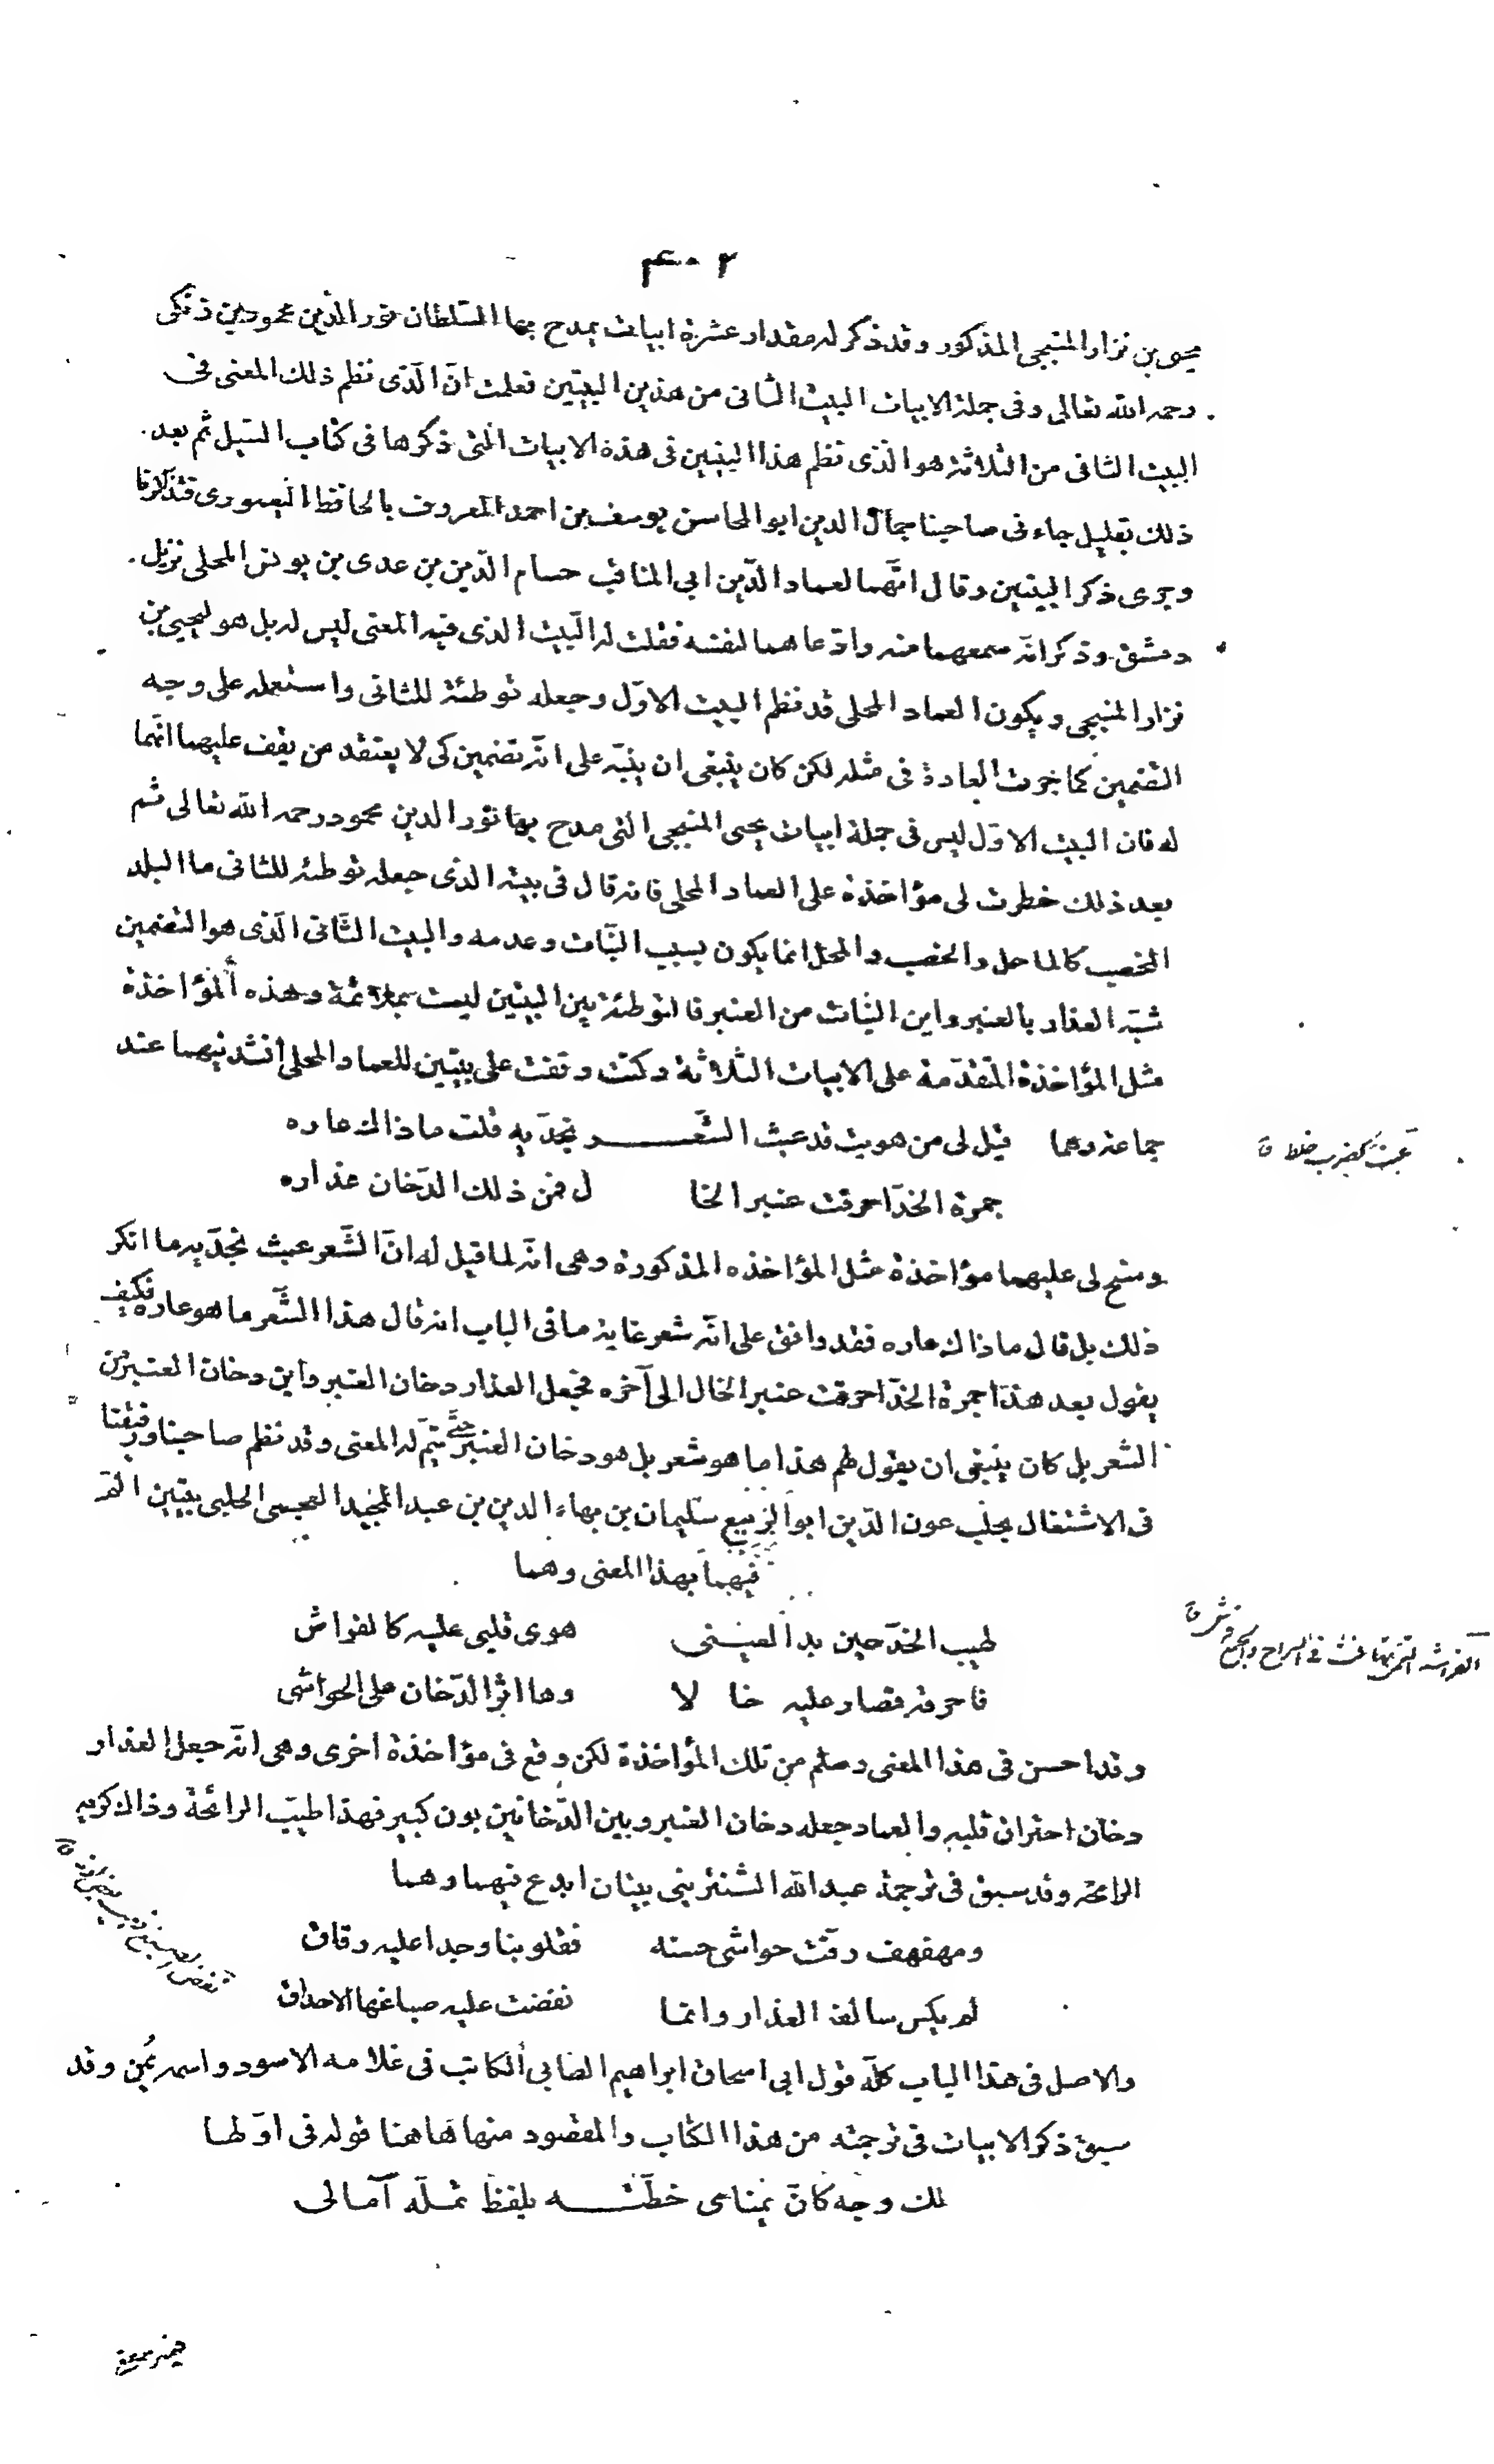 ٤٠٢
يحيى بن نزار المنبجى المذكور وقد ذكر له مقدار عشرة ابيات يمدح بها السلطان نور الدين محمود بن زنكى
رحمه الله تعالى وفى جملة الابيات البيت الثانى من هذين البيتين فعلمت انّ الّذى نظم ذلك المعنى فى
البيت الثانى من الثلاثة هو الذى نظم هذا البيتين فى هذه الابيات الّتى ذكرها فى كتاب السّيل ثم بعد
ذلك بقليل جاء نى صاحبنا جمال الدين ابو المحاسن يوسف بن احمد المعروف بالحافظ اليغمورى فتذاكرنا
وجرى ذكر البيتين وقال انّهما لعماد الدّين ابى المناقب حسام الدّين بن عدى بن يونس المحلى نزيل
دمشق وذكر انّه سمعهما منه وادّعاهما لنفسه فقلت له البيت الذى فيه المعنى ليس له بل هو ليحيى بن
نزار المنبجى ويكون العماد المحلى قد نظم البيت الاوّل وجعله توطئة للثانى واستعمله على وجه
التضمين كما جرت العادة فى مثله لكن كان ينبغى ان ينبّه على انّه تضمين كى لا يعتقد من يقف عليهما انّهما
له فان البيت الاوّل ليس فى جملة ابيات يحيى المنبجى التى مدح بها نور الدين محمود رحمه الله تعالى ثم
بعد ذلك خطرت لى مؤاخذة على العماد المحلى فانه قال فى بيته الذى جعله توطئه للثانى ما البلد
المخصب كالماحل والخصب والمحل انما يكون بسبب النّبات وعدمه والبيت الثّانى الّذى هو التضمين
شبّه العذار بالعنبر واين النبات من العنبر فالتوطئة بين البيتين ليست بملائمة وهذه المؤاخذة
مثل المؤاخذة المتقدّمة على الابيات الثلاثة وكنت وقفت على بيتين للعماد المحلى أنشدنيهما عنه
جماعة وهما قيل لى من هويت قد عبث الشّعـــر بخدّيه قلت ماذاك عاره
عبث كضرب خلط ق
جمرة الخدّ احرقت عنبر الخا ل فمن ذلك الدّخان عذاره
وسنح لى عليهما مؤاخذة مثل المؤاخذه المذكورة وهى انّه لما قيل له انّ الشّعر عبث بخدّيه ما انكر
ذلك بل قال ماذاك عاره فقد وافق على انّه شعر غاية مافى الباب انه قال هذا الشّعر ما هو عاره فكيف
يقول بعد هذا جمرة الخدّ احرقت عنبر الخال الى آخره فجعل العذار دخان العنبر واين دخان العنبر من
الشعر بل كان ينبغى ان يقول لهم هذا ما هو شعر بل هو دخان العنبر حتّى يتمّ له المعنى وقد نظم صاحبنا ورفيقنا
فى الاشتغال بحلب عون الدّين ابو الربيع سليمان بن بهاء الدين بن عبد المجيد العجمى الحلبى بيتين المّ
فيهما بهذا المعنى وهما
لهيب الخدّ حين بدا لعينى هوى قلبى عليه كالفراش
فاحرقه فصار عليه خا لا وها اثر الدّخان على الحواشى
وقد احسن فى هذا المعنى وسلم من تلك المؤاخذة لكن وقع فى مؤاخذة اخرى وهى انّه جعل العذار
دخان احتراق قلبه والعماد جعله دخان العنبر وبين الدّخانين بون كبير فهذا طيّب الرائحة وذاك كريه
الرائحة وقد سبق فى ترجمة عبد الله الشنترينى بيتان ابدع فيهما وهما
ومهفهف رقّت حواشى حسنه فقلوبنا وجدا عليه رقاق
لم يكس سالف العذار وانّما نفضت عليه صباغها الاحداق
والاصل فى هذا الباب كلّه قول ابى اسحاق ابراهيم الصابى الكاتب فى غلامه الاسود واسمه يُمن وقد
سبق ذكر الابيات فى ترجمته من هذا الكتاب والمقصود منها هاهنا قوله فى اوّلها
لك وجه كانّ يمناى خطّتـــه بلفظ تملّه آمالى